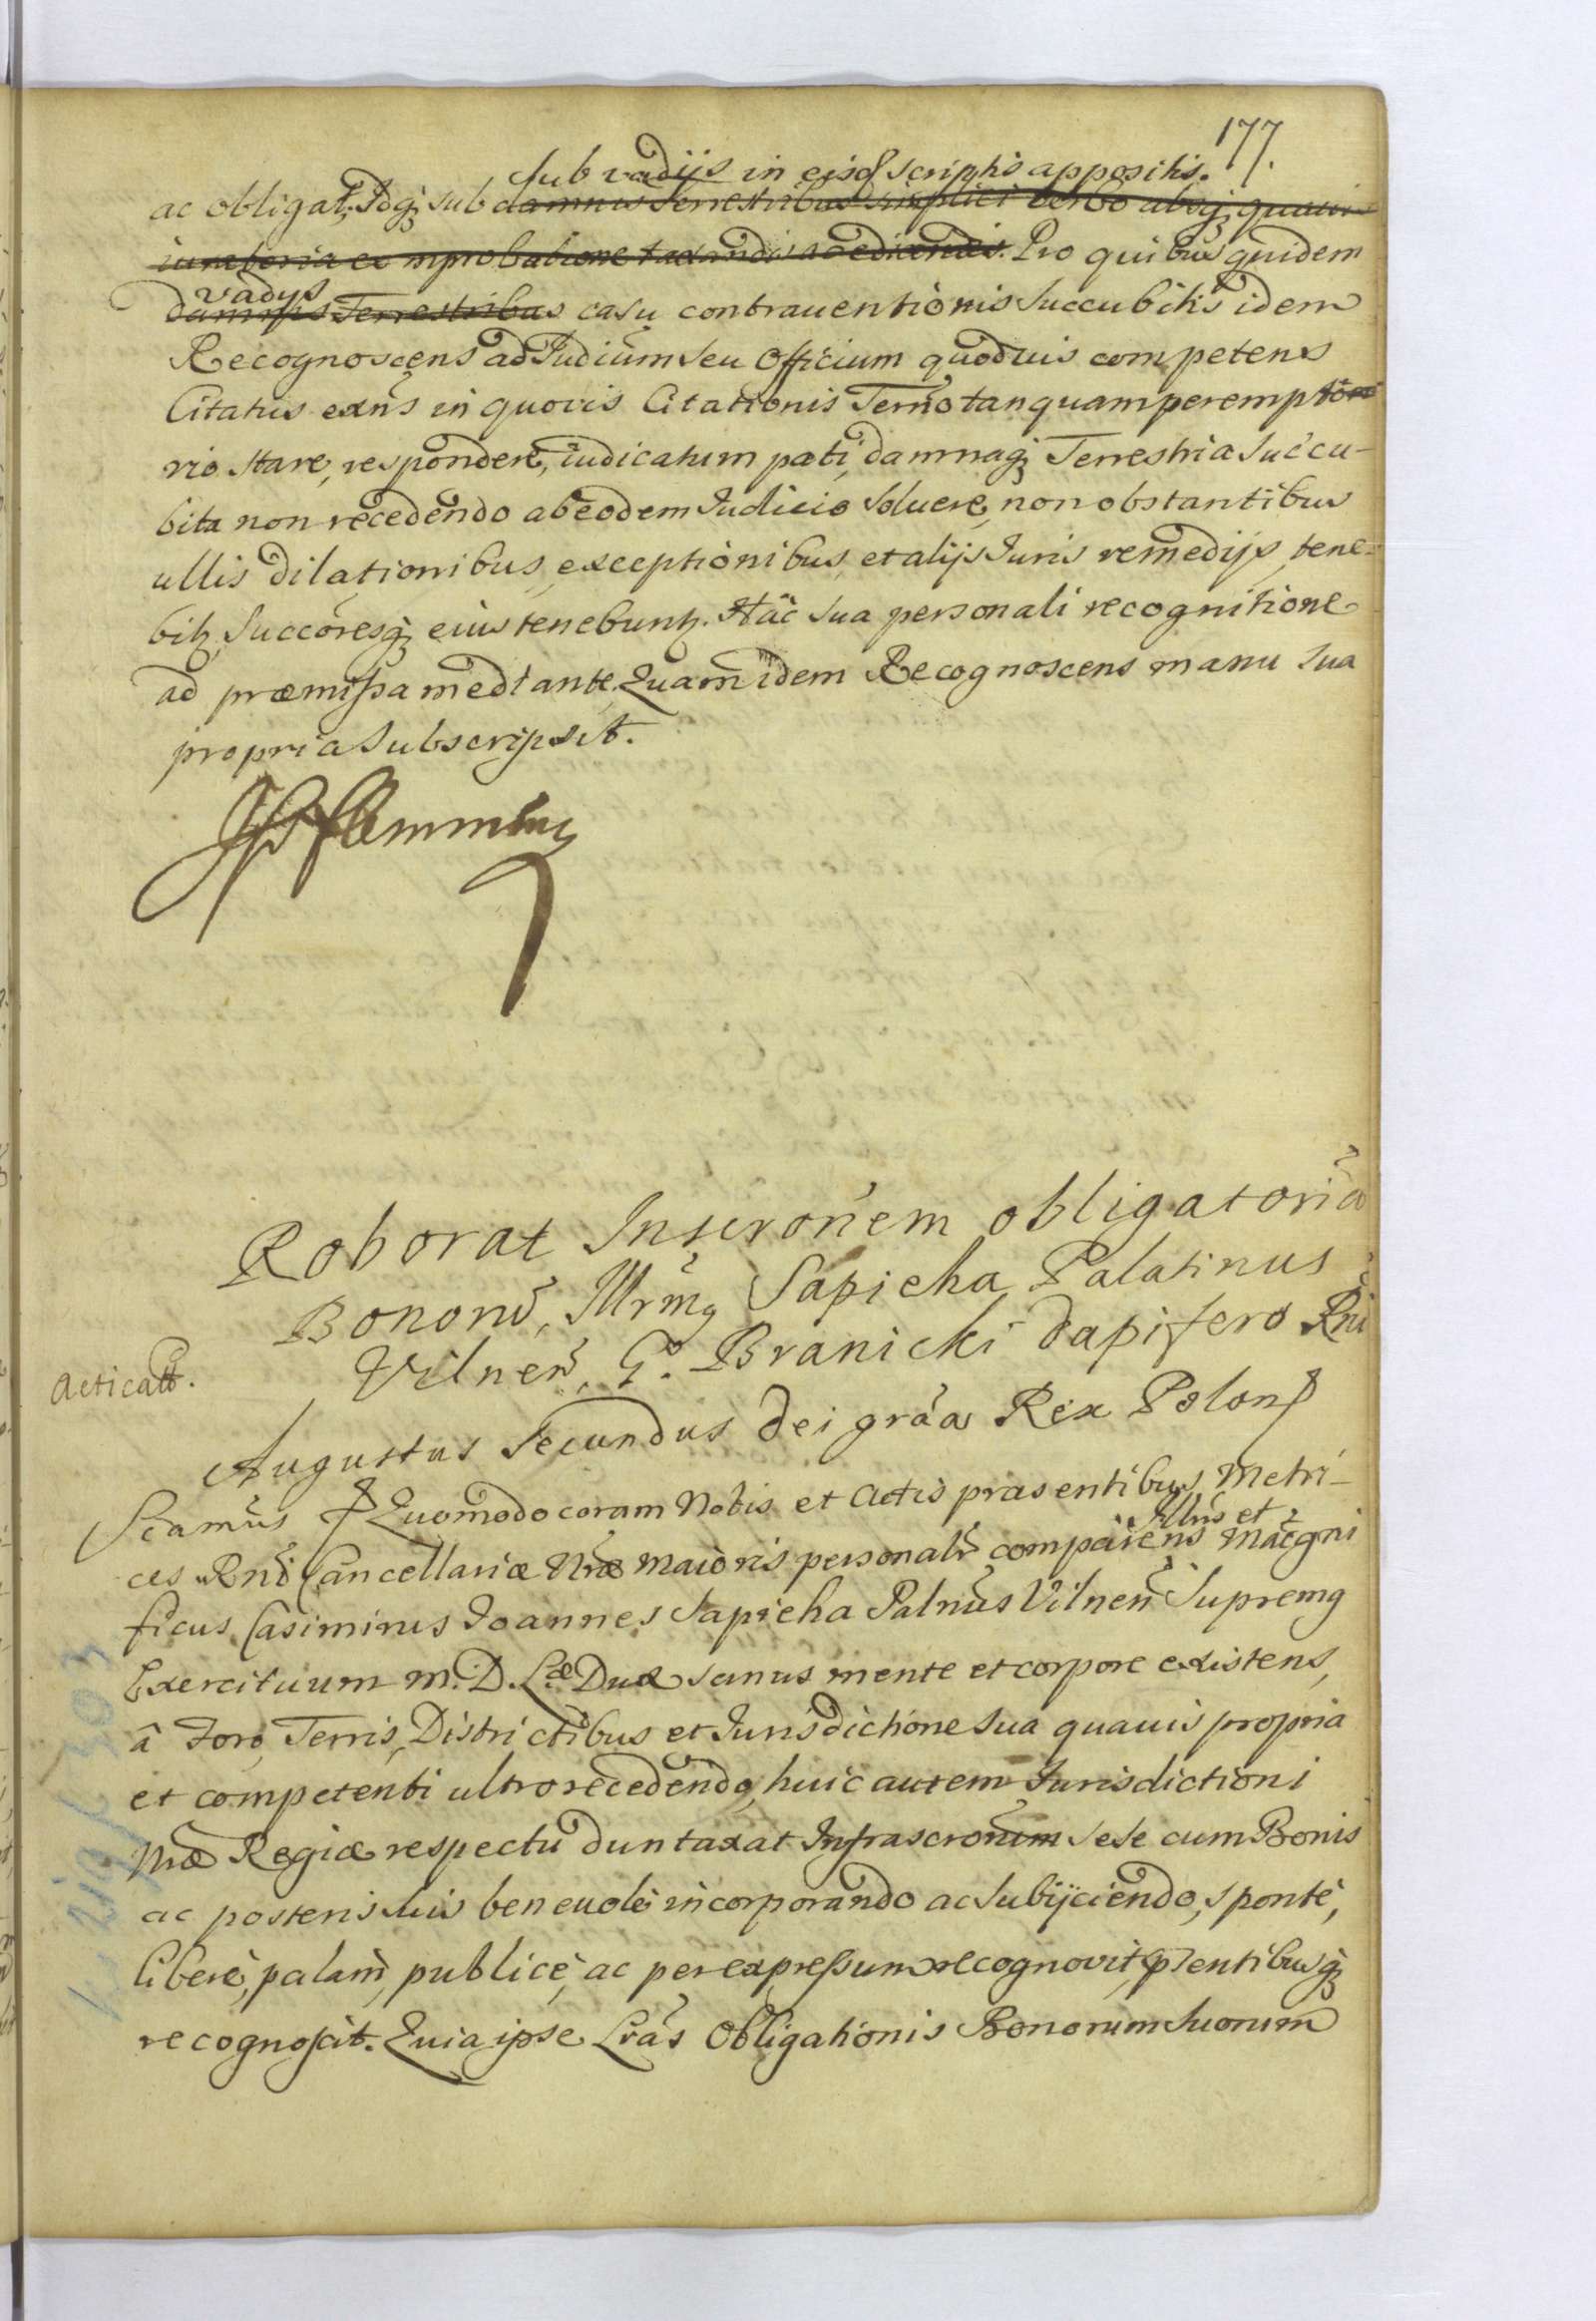 177.
sub vadijs in eisd scriptis appositis.
ac obligat, Idq; sub damnis Terrestribus simplici verbo absq; quauis
iuratoria comprobatione taxandis ac edicendis. Pro quibus quidem
vadys
damnis Terrestribus casu contrauentionis succubitis idem
Recognoscens ad Iudium seu Officium quoduis competens
Citatus exns in quovis Citationis Termo tanquam peremptô
rio stare, respondere, iudicatum pati, damnaq; Terrestria succu-
bita non recedendo ab eodem Iudicio soluere, non obstantibus
ullis dilationibus, exceptionibus, et alijs Iuris remedijs, tene-
bitz, Succoresq; eius tenebuntz. Hac sua personali recognitione
ad præmissa mediante. Quam idem Recognoscens manu sua
propria subscripsit.
Flemming
Roborat Inscronem obligatoriã
Bonorũ, Illrmq Sapieha Palatinus
Vilneñ, G. Branicki dapifero Rni
Acticatt.
Augustus Secundus Dei grãa Rex Polon
Sciamus Quomodo coram Nobis et Actis præsentibus Metri-
Illus et
ces Rni Cancellariæ Nræ maioris personalr comparens Magni
ficus Casimirus Joannes Sapieha Palnus Vilneñ Supremq
Exercituum M. D. L.æ Dux sanus mente et corpore existens,
â Foro, Terris, Districtibus et Iurisdictione sua quauis propria
et competenti ultro recedendo, huic autem Iurisdictioni
Nræ Regiæ respectu duntaxat Infrascronum sese cum Bonis
ac posteris suis beneuole incorporando ac subijciendo, sponte,
libere, palam, publice, ac per expressum recognovit, psentibusq;
recognoscit. Quia ipse Lras Obligationis Bonorum suorum